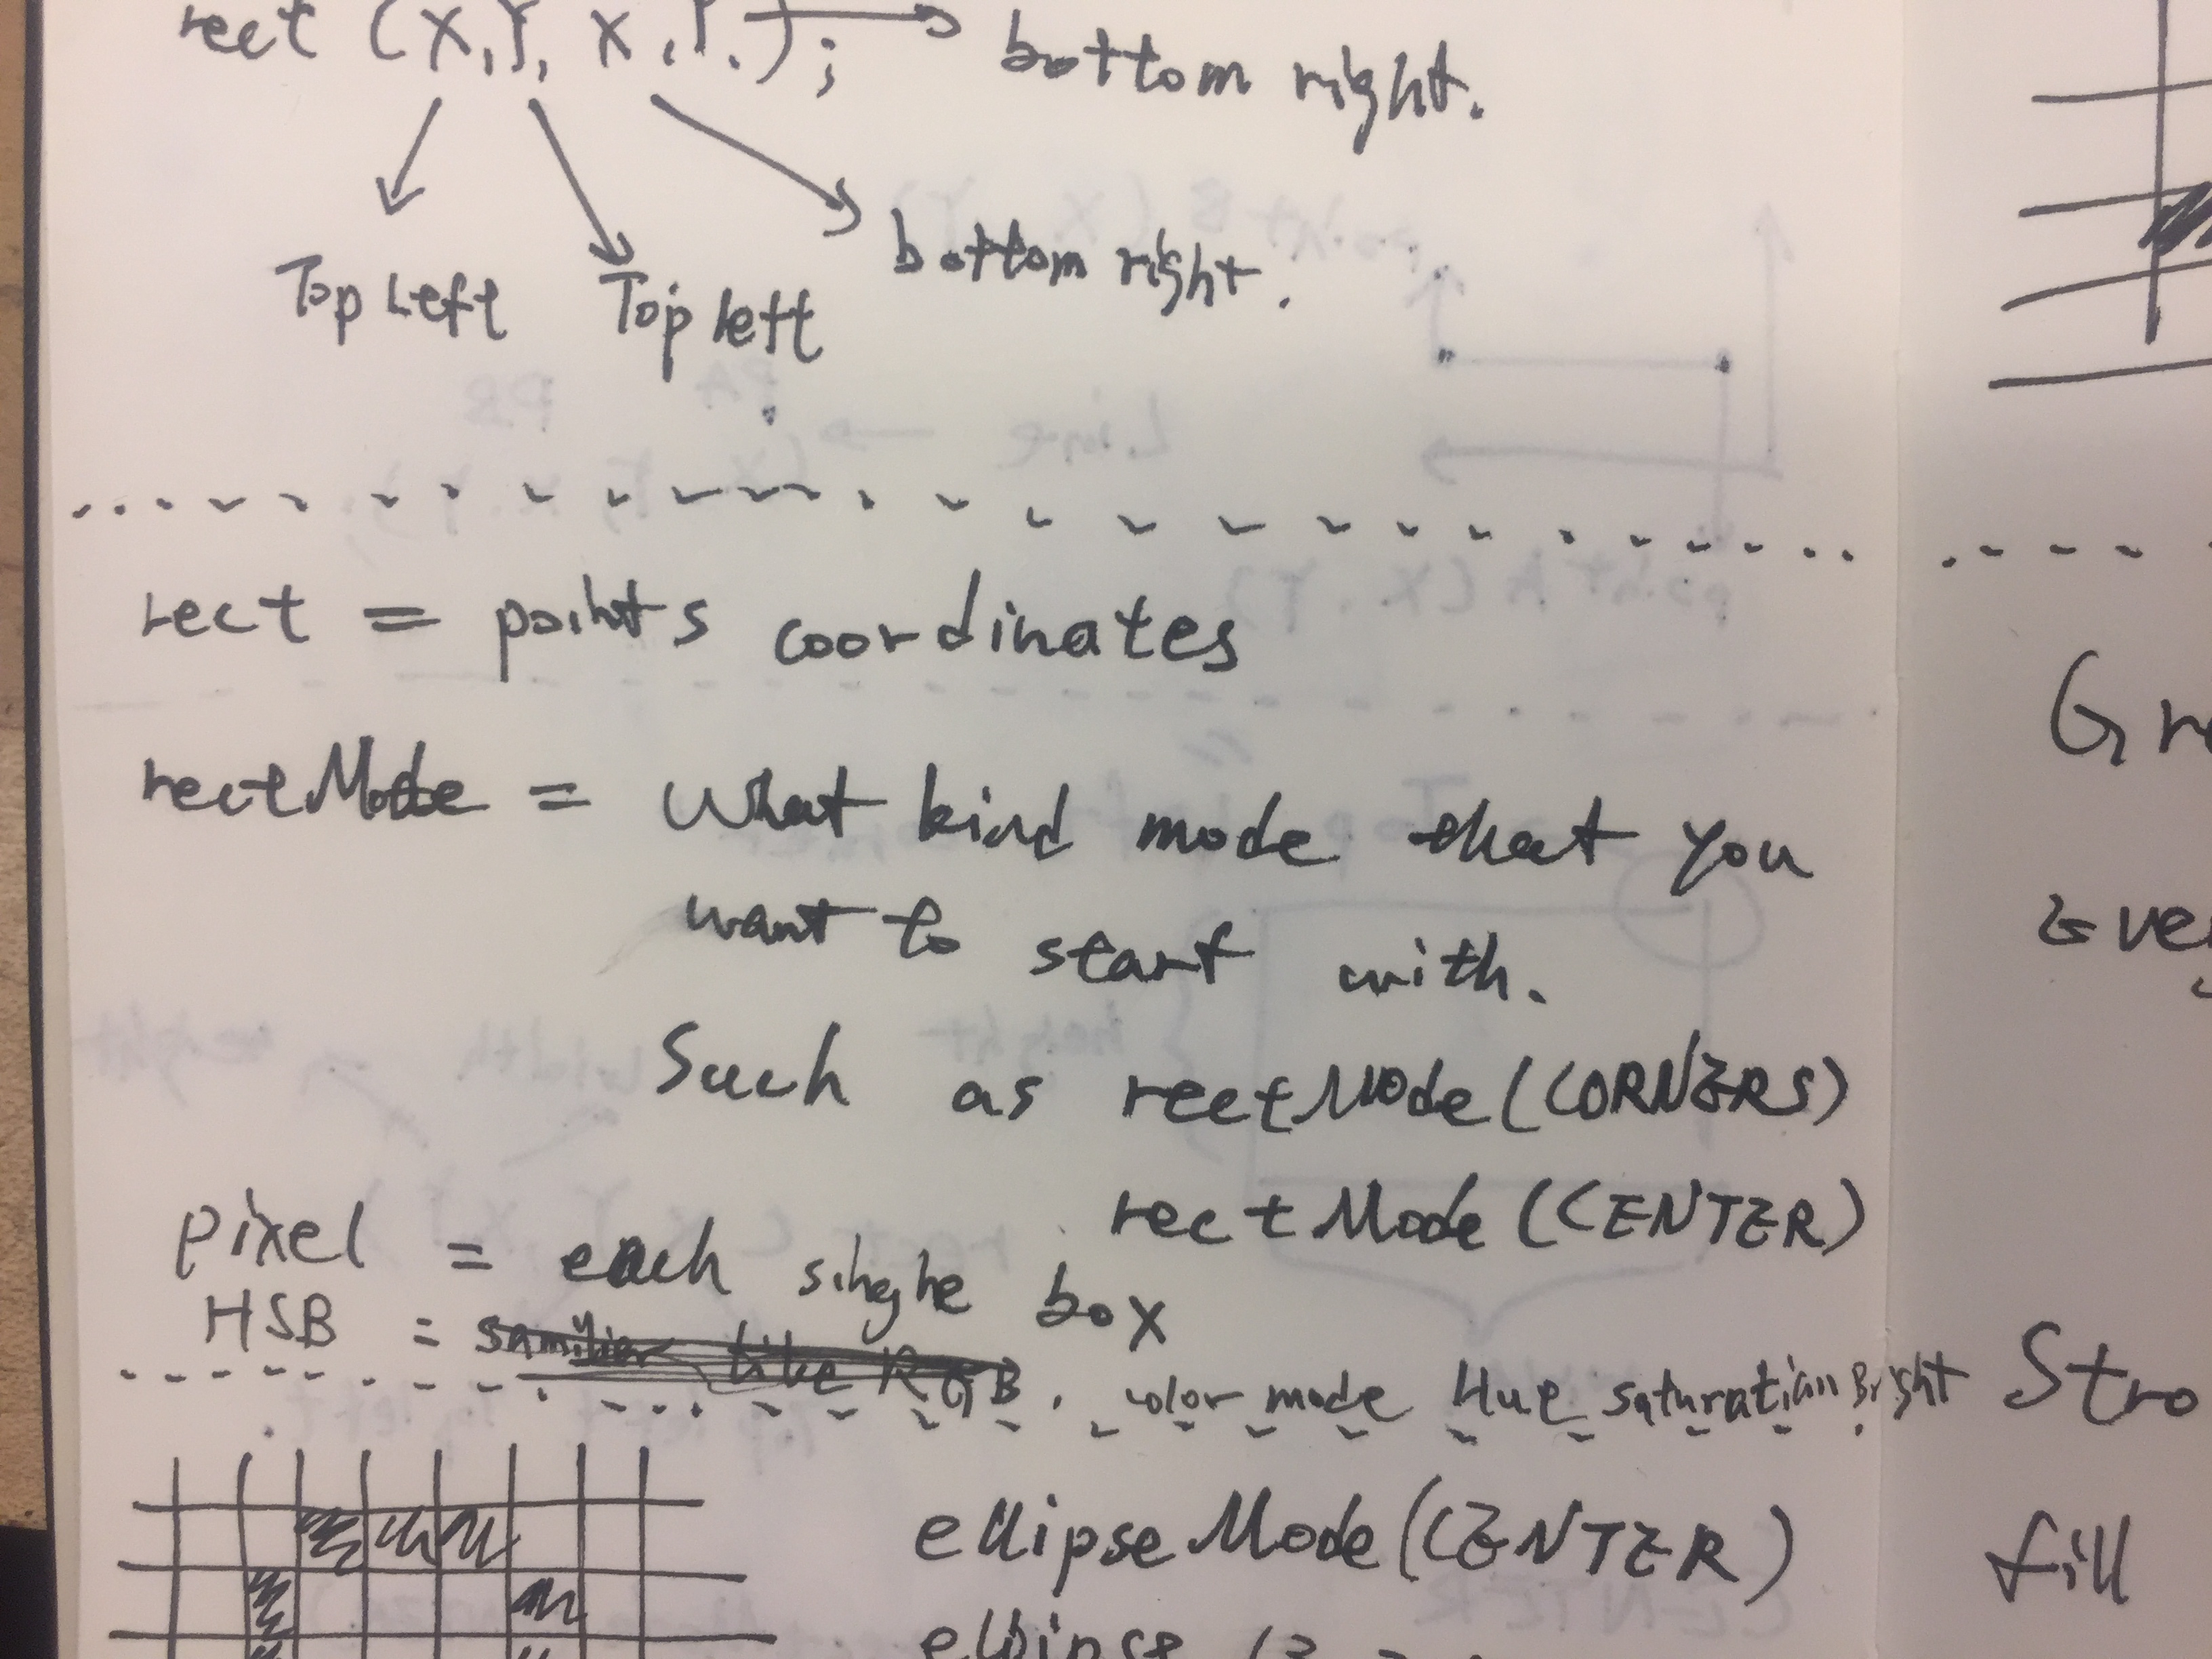 rect (X,Y, X,Y.);
bottom right.
Top Left
Top left
bottom right.
rect = points coordinates
rectMode = What kind mode that you
want to start with.
Such as rectMode(CORNERS)
rectMode(CENTER)
pixel = each single box
HSB = like RGB. color mode Hue saturation Bright
ellipseMode(CENTER)
ellipse (
Gr
Stro
fill